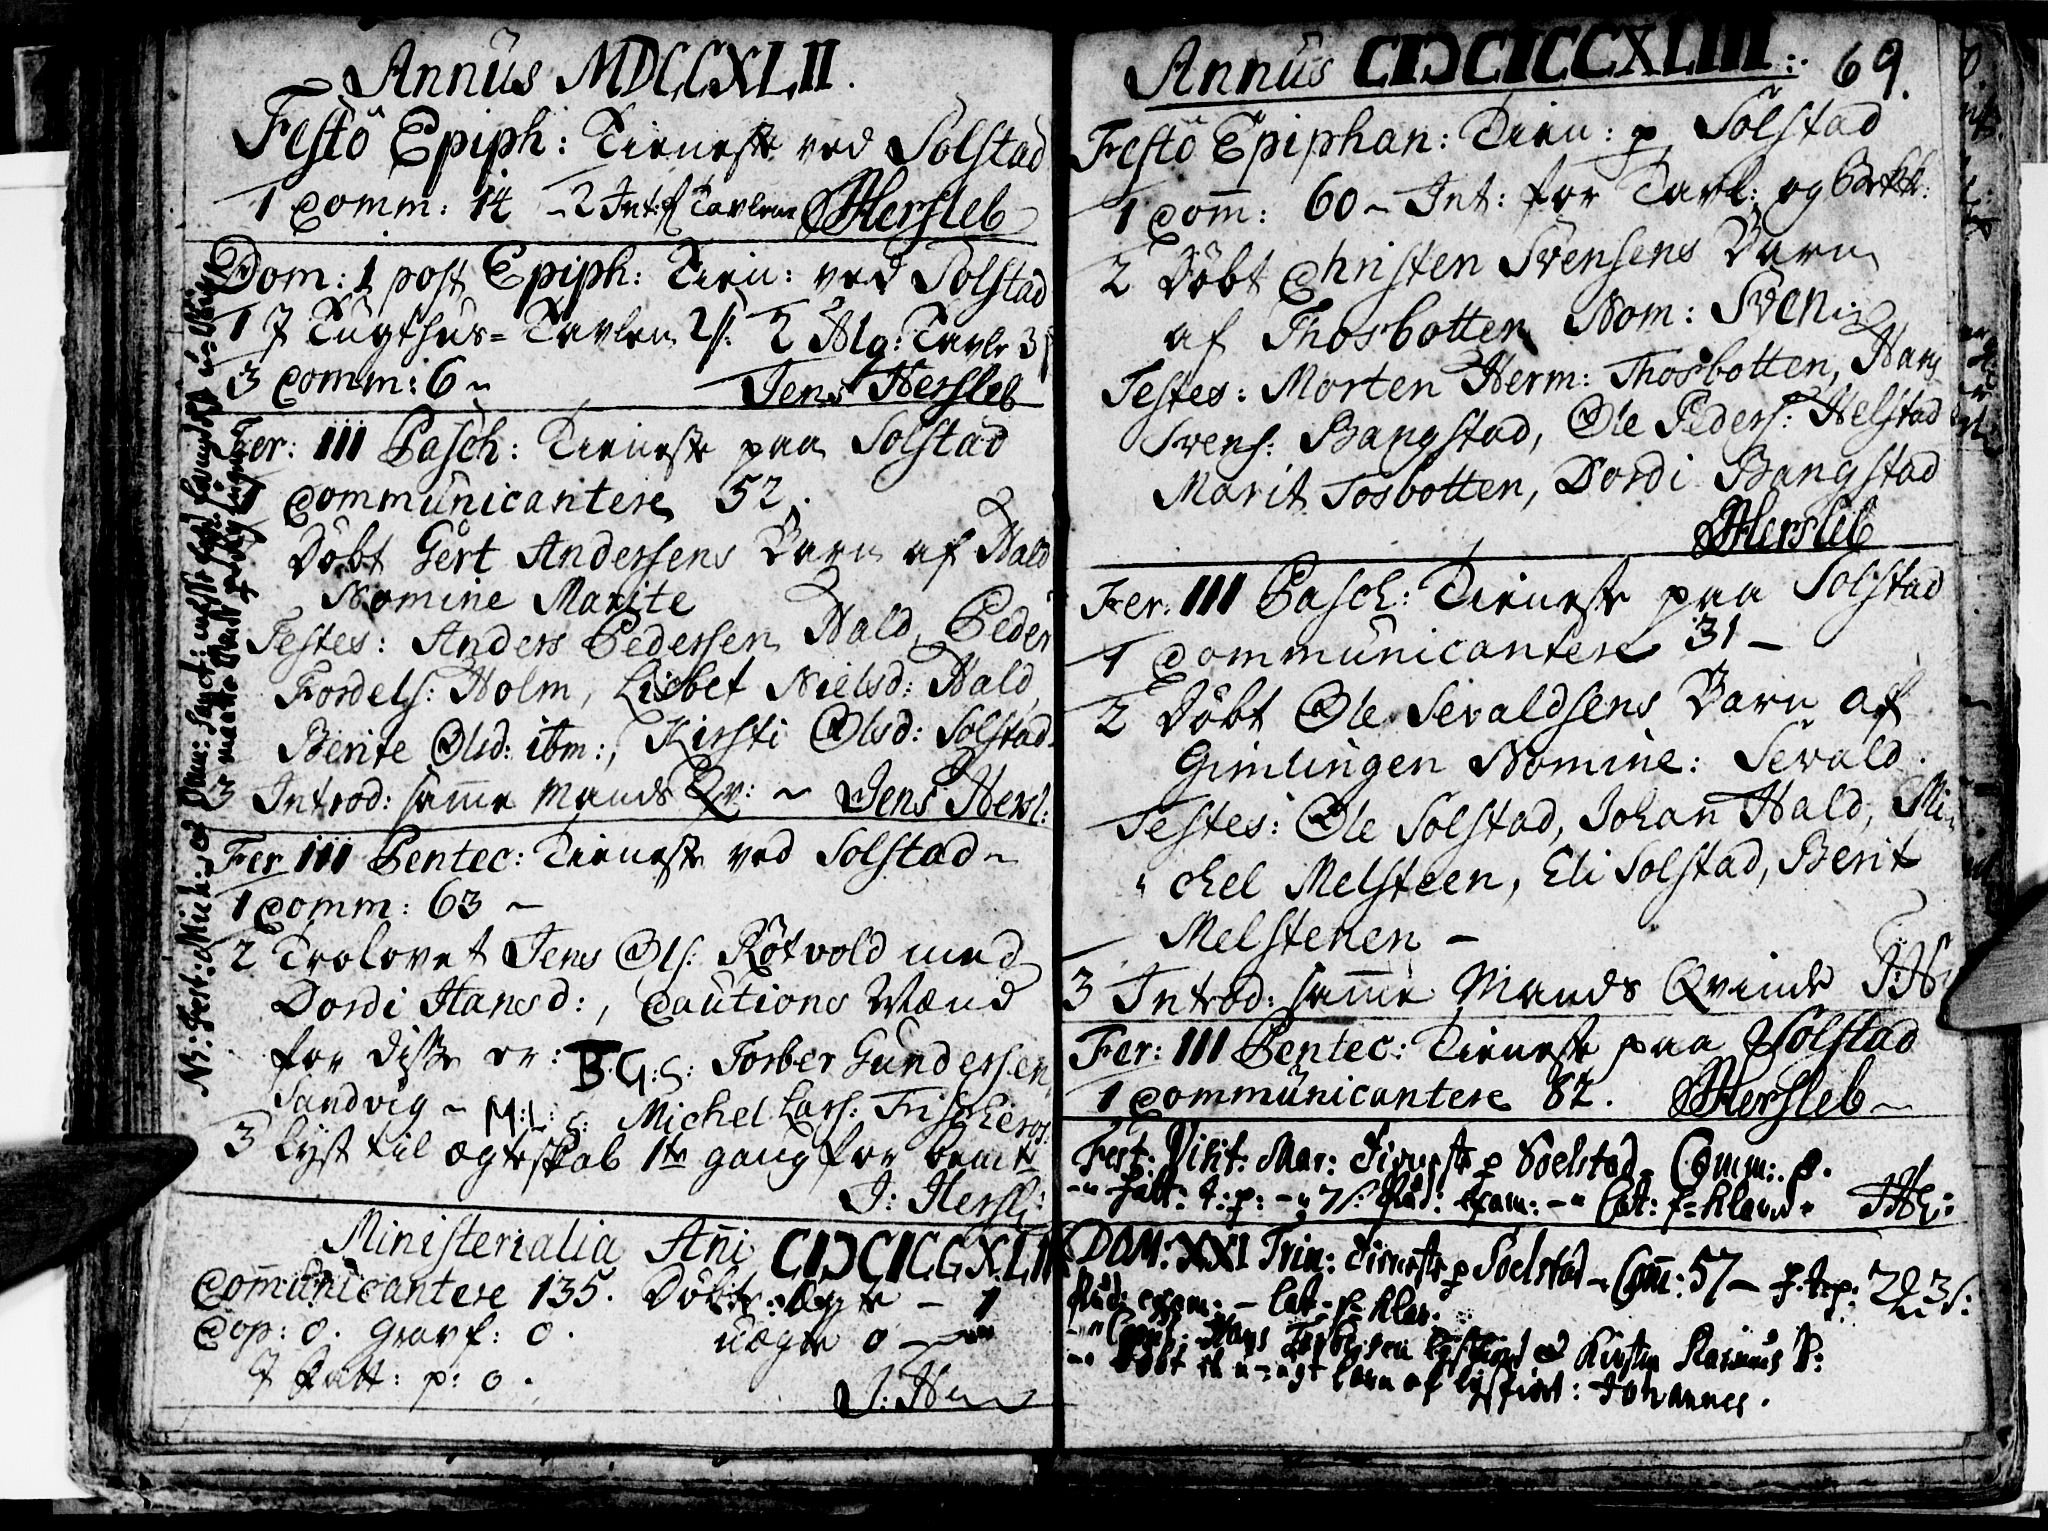 Annus MDCCXLII.
Festo Epiph: Tieneste ved Solstad
1 Comm: 14 ~ 2 Int: f Tavlene JHersleb
Dom: 1 post Epiph: Tien: ved Solstad
1 Tugthus= Tavlen 2 s: 2 Alg: Tavle 3 s
3 Comm: 6 ~ Jens Hersleb
Fer: III Pasch: Tieneste paa Solstad
1 Communicantere 52.
Döbt Gert Andersens Barn af Hald
Nomine Marite
Testes: Anders Pedersen Hald, Peder
Fordels: Holm, Lisbet Nielsd: Hald,
Berite Olsd: ibm:, Kirsti Olsd: Solstad
3 Introd: samme Mands Qv: ~ Jens Hersl:
Fer III Pentec: Tieneste ved Solstad ~
1 Comm: 63 ~
2 Trolovet Jens Ols: Rötvold med
Dordi Hansd:, Cautions Mænd
for disse er: B.G:S: Torber Gundersen
Sandvig ~ M:L:S: Michel Lars:
3 Lyst til ægteskab 1te gang for
J: Hersl:
Ministerialia Añi CIƆCICCXLII
Com̄unicantere 135. Döbte: Ægte – 1
Cop: 0. Gravf: 0. uægte 0 –
Fatt: p: 0.
J: H
NB: Fest: Mich: et Dom:
Annus CIƆCICCXLIII:. 69.
Festo Epiphan: Tien: p Solstad
1 Com̄: 60 ~ Int: for Tavl: og
2 Döbt Christen Svensens Barn
af Thosbotten Nom: Sven
Testes: Morten Herm: Thosbotten, Hans
Svens: Bangstad, Ole Peders: Helstad
Marit Tosbotten, Dordi Bangstad
JHersleb
Fer: III Pasch: Tieneste paa Solstad
1 Communicantere 31 –
2 Döbt Ole Sevaldsens Barn af
Gimlingen Nomine: Sevald.
Testes: Ole Solstad, Johan Hald, Mi
chel Melsteen, Eli Solstad, Berit
Melstenen –
3 Introd: sam̄e Mands Qvinde JH
Fer: III Pentec: Tieneste paa Solstad
1 Communicantere 82. JHersleb ~
Fest: Visit: Mar: Tieneste p Soelstad Comm: 8.
Fatt: t: p: exam: Cat: f=klared JH:
DOM: XXI Trin: Tieneste p Soelstad ~ Com̄: 57 –
exam: – Cat: f=klar.
Hans Torbersen et Kirsten Rasmus D:
Döbt Barn af: Johannes.